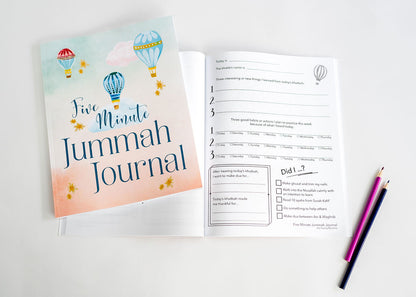 Five
Minute
Jummah
Journal
Today is
The khateeb's name is
Three interesting or new things I learned from today's khutbah:
1
2
3
Three good habits or actions I plan to practice this week
because of what I heard today:
1
2
3
After hearing today's khutbah,
I want to make dua for...
Today's khutbah made
me thankful for...
Did I ...?
Make ghusl and trim my nails
Walk into the Musallah calmly with
an intention to learn
Read 10 ayahs from Surah Kahf
Do something to help others
Make dua between Asr & Maghrib
Five Minute Jummah Journal